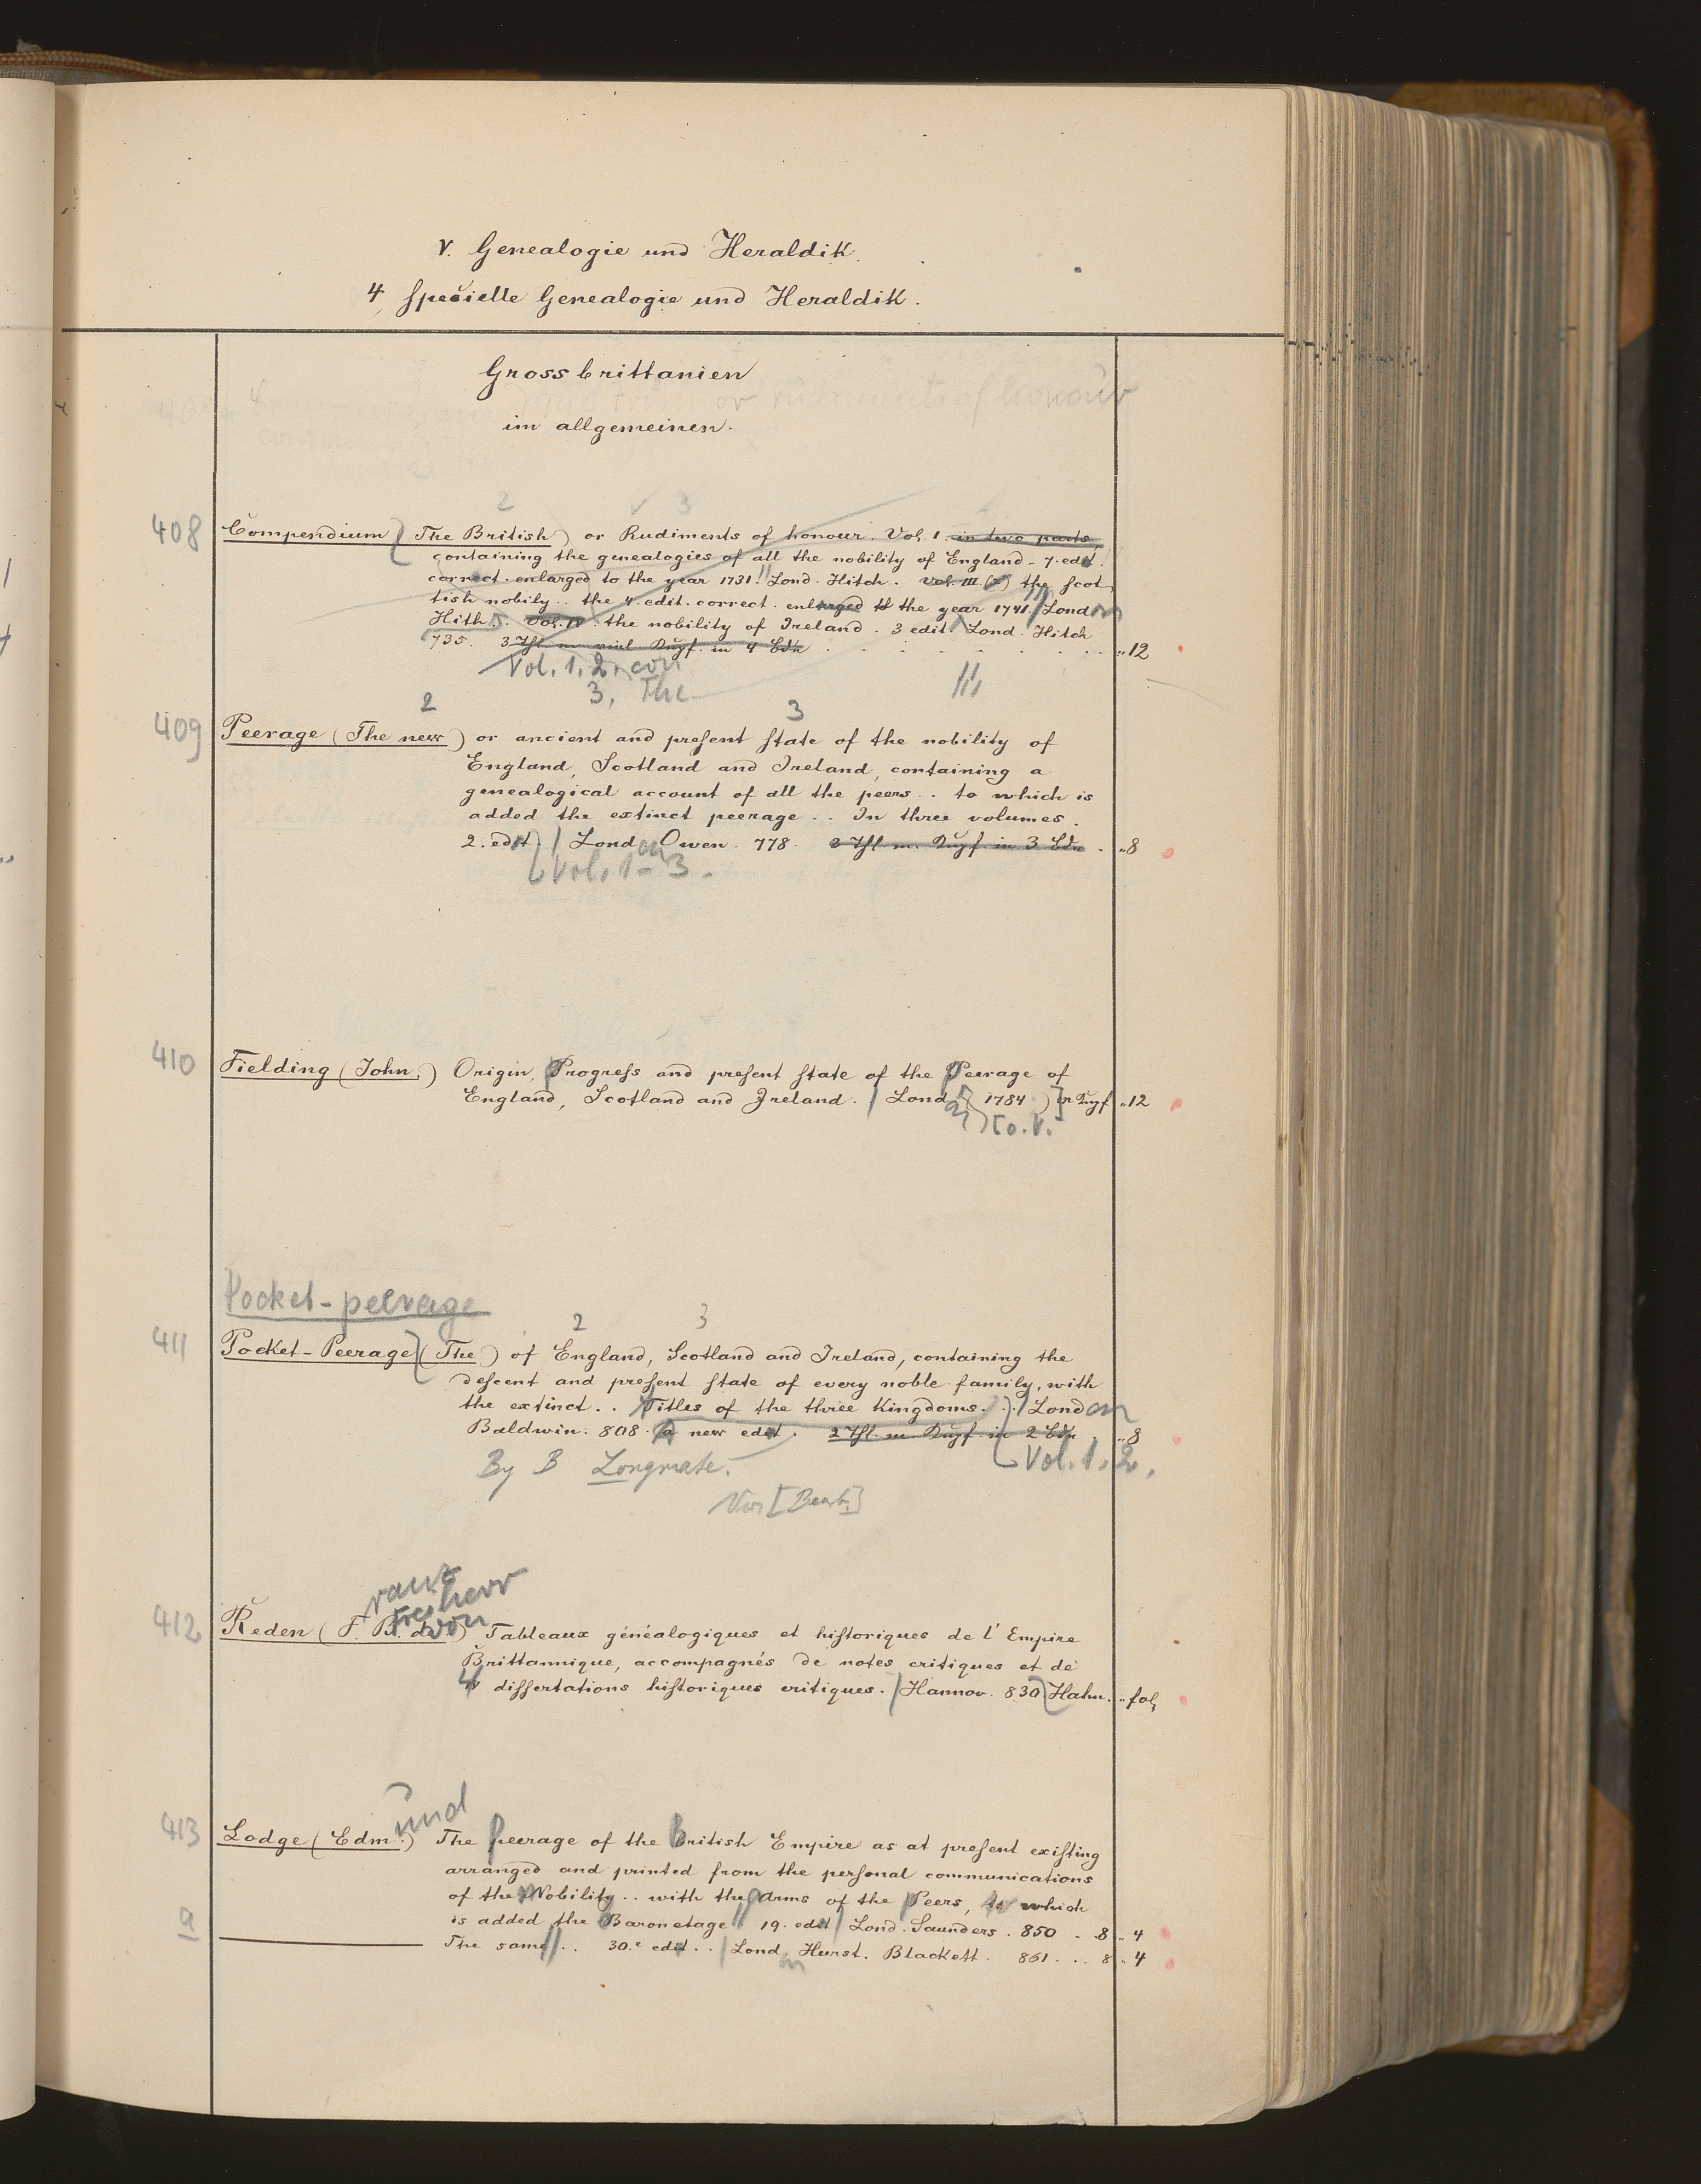 V. Genealogie und Heraldik.
4, Specielle Genealogie und Heraldik.
Grossbrittanien
im allgemeinen.
2 3
408 Compendium (The British) or Rudiments of honour. Vol. 1. in two parts,
containing the genealogies of all the nobility of England - 7. edit.
correct. enlarged to the year 1731. Lond. Hitch. Vol. III. the Scot
tish nobily .. the 4. edit. correct. enlarged to the year 1741. London
Hith. . Vol. IV. the nobility of Ireland. 3 edit. Lond. Hitch
735. 3 Thl. m. viel. Kupf. in 4 Bdn . . . . . . . . „12
Vol. 1, 2, cor
3, The
2 3
409 Peerage (The new) or ancient and present state of the nobility of
England, Scotland and Ireland, containing a
genealogical account of all the peers .. to which is
added the extinct peerage .. In three volumes.
2. edit. / London Owen. 778. 3 Thl. m. Kupf. in 3 Bdn . „8
Vol. 1-3.
410 Fielding (John.) Origin, Progress and present state of the Peerage of
England, Scotland and Ireland. / Lond. (1784) m Kupf „12
[o. V.
Pocket-peerage
2 3
411 Pocket-Peerage (The) of England, Scotland and Ireland, containing the
descent and present state of every noble family, with
the extinct .. Titles of the three Kingdoms. .. / London
Baldwin. 808. A new edit. 2 Thl. m. Kupf. in 2 Bdn . „8
Vol. 1, 2,
By B Longmate.
[Bearb.]
ranz
Freiherr
von
412 Reden (F. B. de) Tableaux généalogiques et historiques de l'Empire
Brittannique, accompagnés de notes critiques et de
dissertations historiques critiques. / Hannov. 830 Hahn. „fol,
und
413 Lodge (Edm.) The peerage of the British Empire as at present existing
arranged and printed from the personal communications
of the Nobility .. with the Arms of the Peers, to which
a is added the Baronetage. 19. edit / Lond. Saunders. 850 . 8 „4
The same .. 30.e edit .. / Lond. Hurst. Blackett. 861 . .. 8 „4